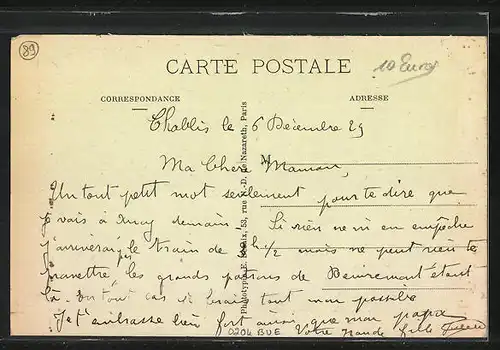 89
CARTE POSTALE
10 Euros
CORRESPONDANCE
ADRESSE
Chablis le 6 Décembre 29
M
Ma Chère Maman,
Un tout petit mot seulement pour te dire que
je vais à demain Si rien ne m'en empêche
j'arriverai le train de h 1/2 mais ne peut rien te
promettre, les grands patrons de étant
là. En tout cas je ferai tout mon possible
Je t'embrasse bien fort ainsi que mon papa
Votre grande fille
0204 BUE
Phototypie 53, rue N.-D. de Nazareth, Paris